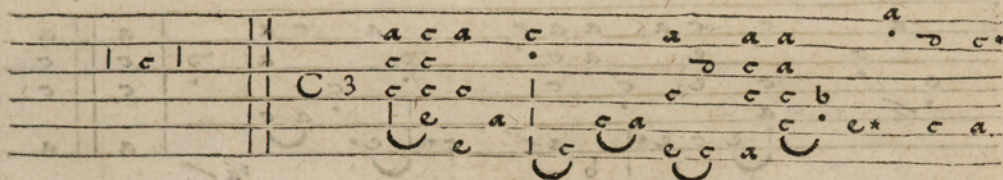 a
a c a c a a a d c*
c c c d c a
C 3 c c c c c c b
e a c a c e* c a
e c e c a